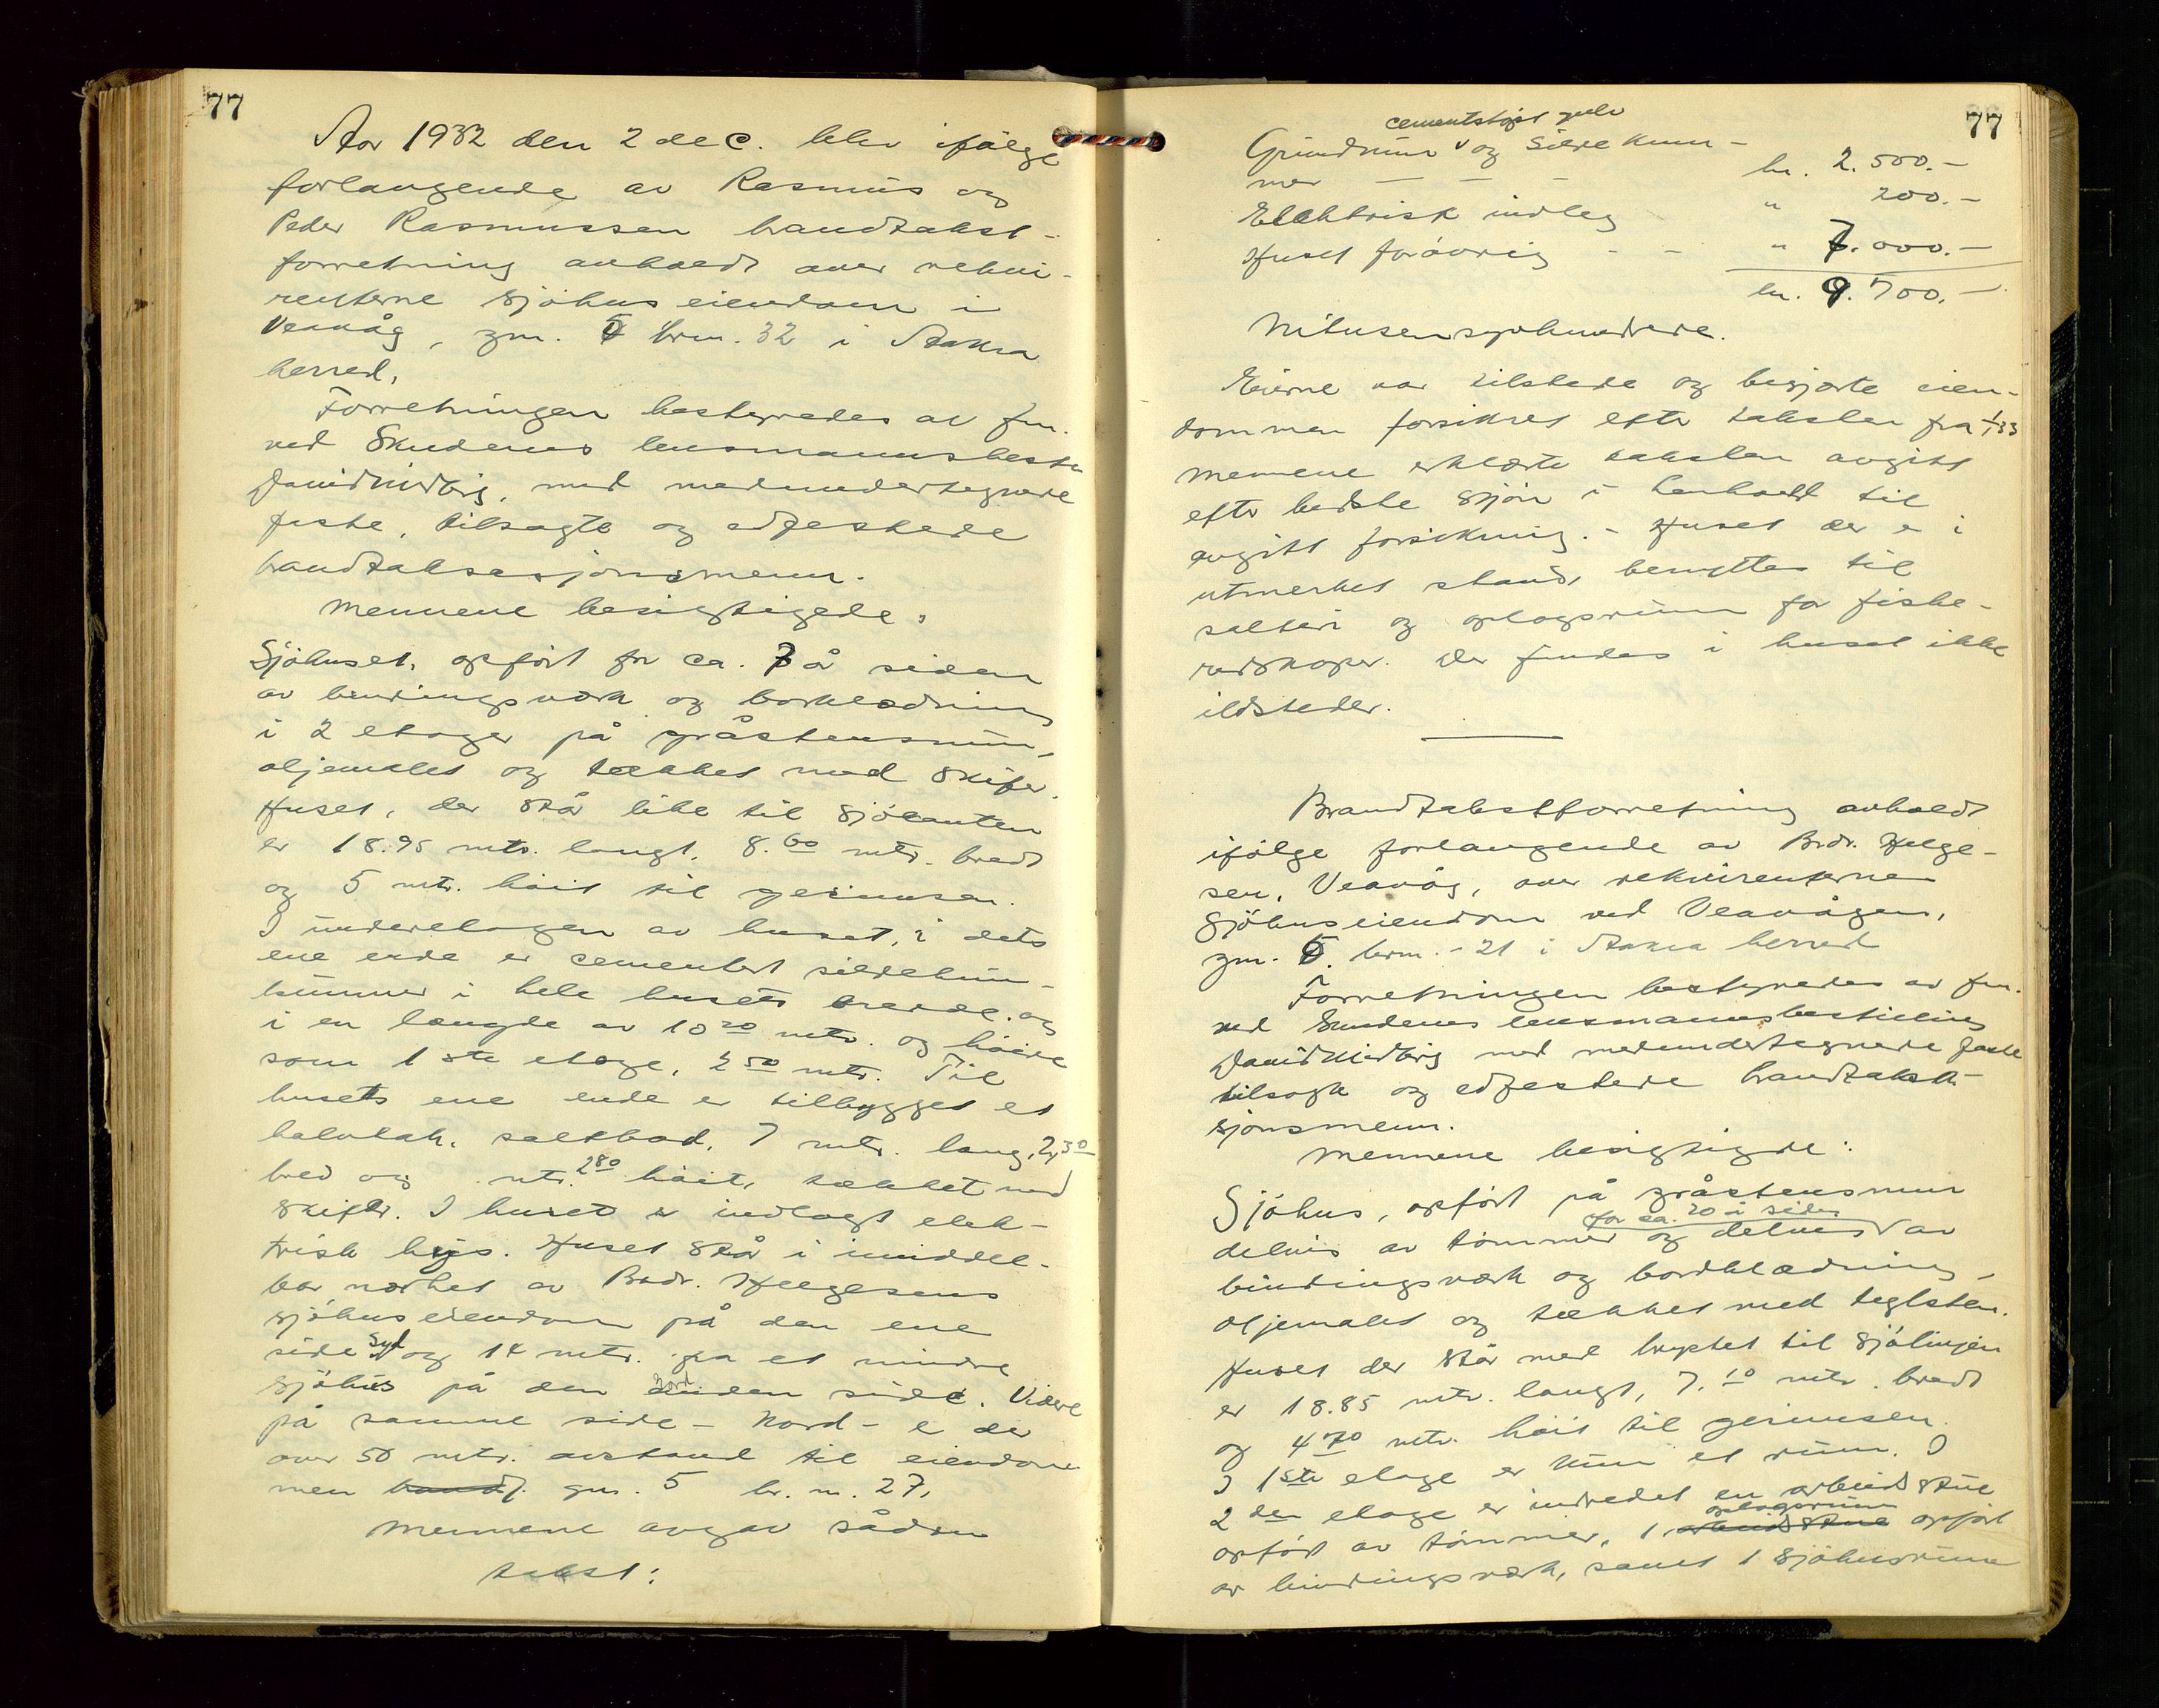 77
Aar 1932 den 2 dec. blev ifölge
forlangende av Rasmus og
Peder Rasmussen brandtakst-
forretning avholdt over rekvi-
renterne sjöhuseiendom i
Veavåg, gnr. 5 brn. 32 i Stakra
herred.
Forretningen bestyredes av fm.
ved Skudenes lensmannsbest.
David Midbrg, med medundertegnede
faste, tilsagte og edfestede
brandtakseskjönsmenn.
Mennene besigtigede:
Sjöhuset, opfört for ca. 7 å siden
av bindingsverk og borklædning
i 2 etager på gråstensmur,
oljemalet og tækket med skifer.
Huset, der står like til sjökanten
er 18.95 mtr. langt, 8.60 mtr. bredt
og 5 mtr. höit til gesimsen.
I underetagen av huset, i dets
ene ende er cementert sildekum-
kummer i hele husets bredde, og
i en længde av 10 20 mtr. og höide
som 1ste etage, 2 50 mtr. Til
husets ene ende er tilbygget et
halvtak, saltbod, 7 mtr. lang, 2,30
bred og mtr. 2 80 höit, tækket med
skifer. I huset er indlagt elek-
trisk lys. Huset står i umiddel-
bar nærhet av Brdr. Helgesens
sjöhuseiendom på den ene
side Syd og 14 mtr. fra et mindre
sjöhus på den anden Nord side. Videre
på samme side - Nord - er der
over 50 mtr. avstand til eiendom-
men gnr. 5 br. n. 27.
Mennene avgav sådan
takst:
77
cementstöpt gulv
Grundmur og Sildekum-
mer — — — kr. 2.500.-
Elektrisk indleg " 200.-
Huset forövrig - - " 7.000.-
kr. 9.700.-
Nitusensyvhundrede.
Eierne var tilstede og begjærte eien-
dommen forsikret efter taksten fra 1/1 33
Mennene erklærte taksten avgitt
efter bedste skjön i henhold til
avgitt forsikring. - Huset der er i
utmerket stand, benyttes til
salteri og oplagsrum for fiske-
redskaper. Der findes i huset ikke
ildsteder.
Brandtakstforretning avholdt
ifölge forlangende av Brdr. Helge-
sen, Veavåg, over rekvirenterne
Sjöhuseiendom ved Veavågen,
gnr. 5. brn. - 21 i Stakra herred
Forretningen bestyredes av fm.
ved Skudenes lensmannsbestilling
David Midbrg med medundertegnede faste
tilsagte og edfestede brandtakst-
sjönsmenn.
Mennene besigtigede:
Sjöhus, opfört på gråstensmur
for ca. 20 å siden
delvis av tömmer og delvis av
bindingsverk og bordklædning,
oljemalet og tækket med teglsten.
Huset der står med bryst til sjölinjen
er 18.85 mtr. langt, 7.10 mtr. bredt
og 4 70 mtr. höit til gesimsen.
I 1ste etage er kun et rum. I
2den etage er indredet en arbeidsstue
oplagsrum
opfört av tömmer, 1 arbeidsstue opfört
av bindingsverk, samt 1 sjöhusrum